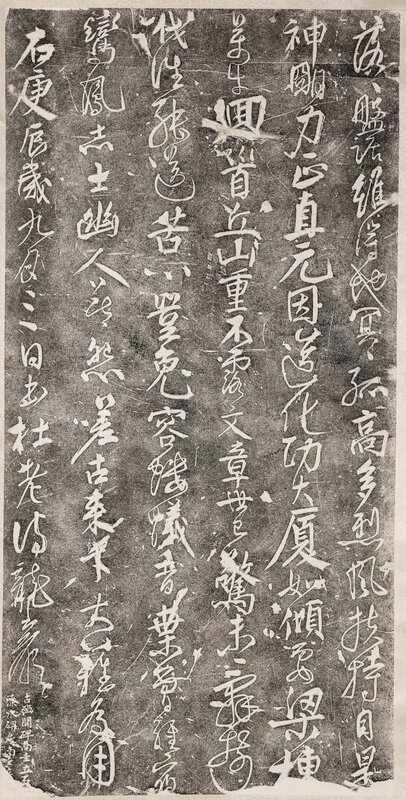 落〻盤踞雖得地冥〻孤高多烈風扶持自是
神朙力正直元因造化功大廈如傾要梁棟
萬牛迴首丘山重不露文章世已驚未辭剪
伐誰能送苦心豈免容螻蟻香葉曾經宿
鸞鳳志士幽人莫怨嗟古來材大難為用
右庚辰歲九月三日書杜老詩龍岩